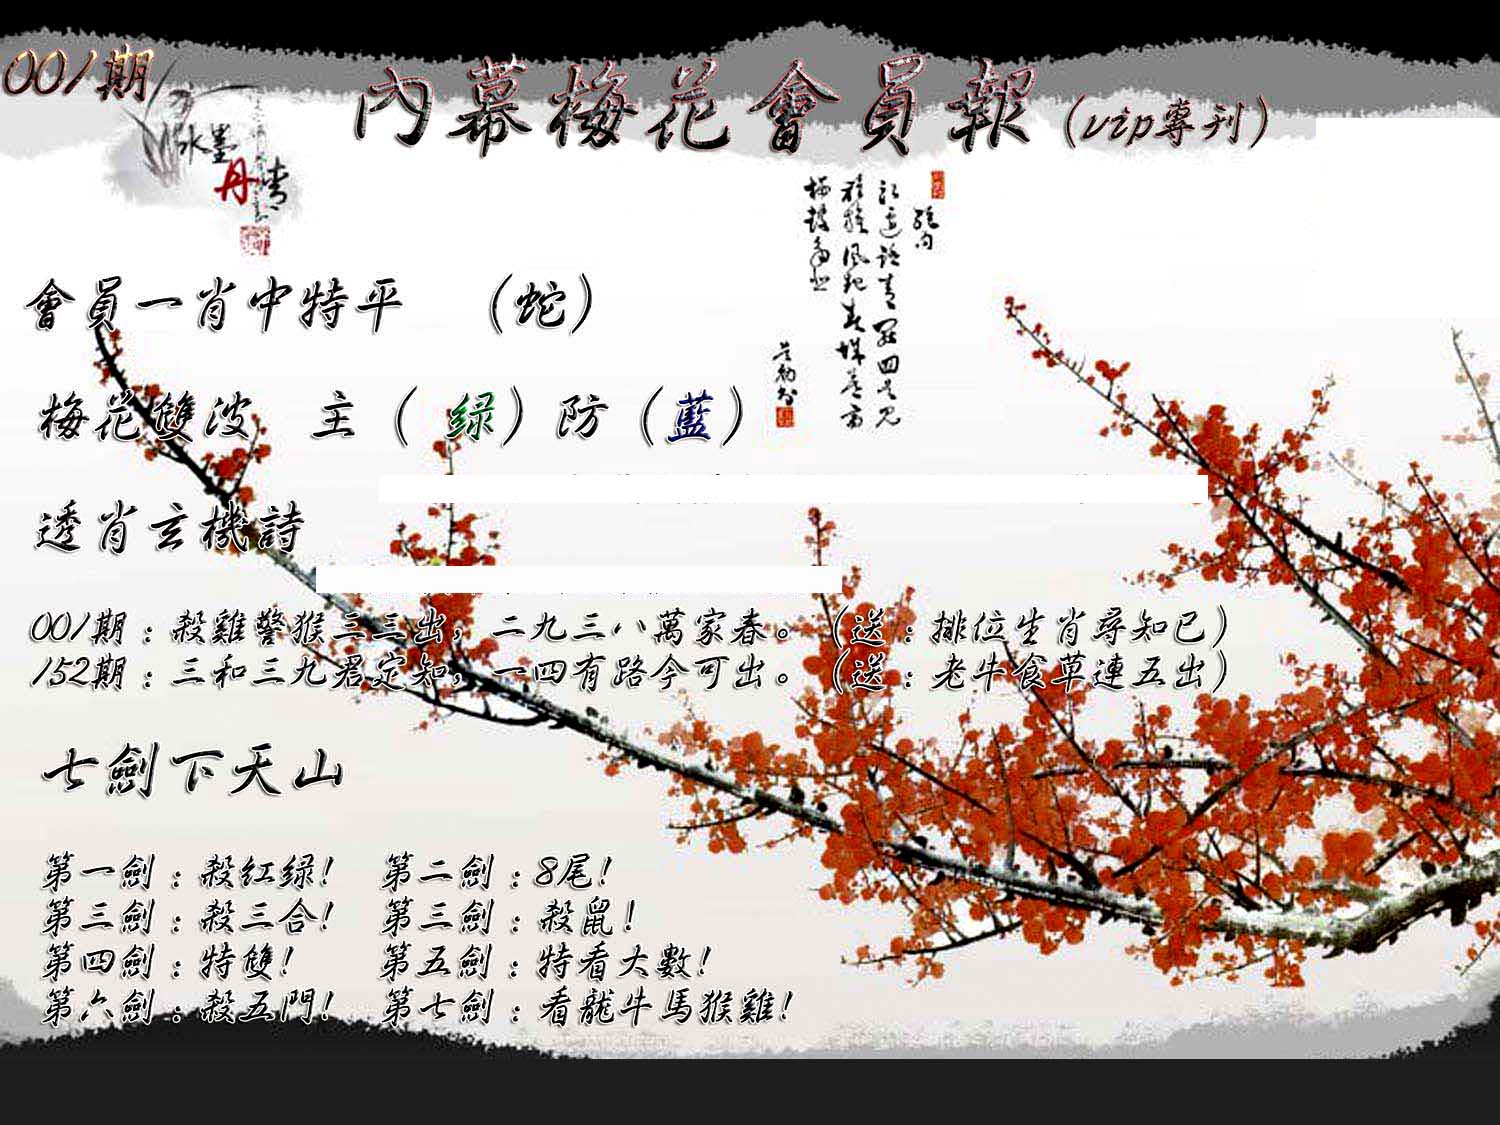 001期
內幕梅花會員報(vip專刊)
水墨
丹青
絕句
會員一肖中特平 (蛇)
梅花雙波 主(绿)防(藍)
透肖玄機詩
001期：殺雞警猴三三出，二九三八萬家春。(送：排位生肖尋知已)
152期：三和三九君定知，一四有路今可出。(送：老牛食草連五出)
七劍下天山
第一劍：殺紅绿! 第二劍：8尾!
第三劍：殺三合! 第三劍：殺鼠!
第四劍：特雙! 第五劍：特看大數!
第六劍：殺五門! 第七劍：看龍牛馬猴雞!